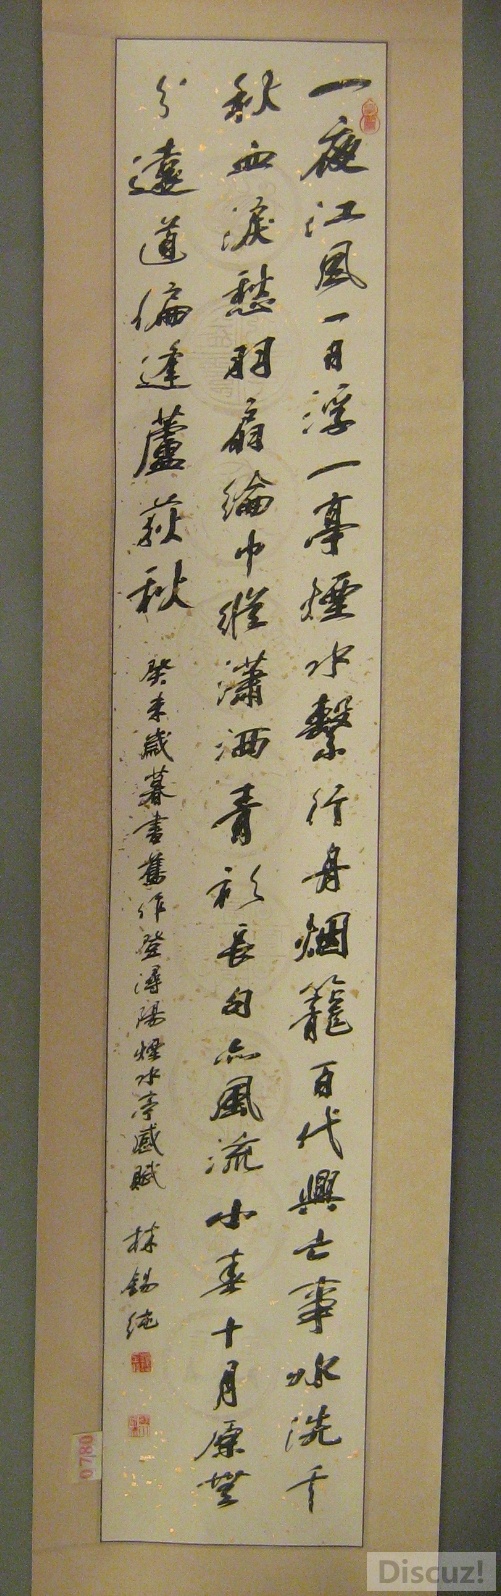 一夜江風一日浮一亭煙水繫行舟烟籠百代興亡事水洗千
秋血淚愁羽扇綸巾縱瀟洒青衫長句亦風流小春十月原
分遠道偏逢蘆荻秋
癸未歲暮書舊作登潯陽煙水亭感賦 林錫純
0780
Discuz!